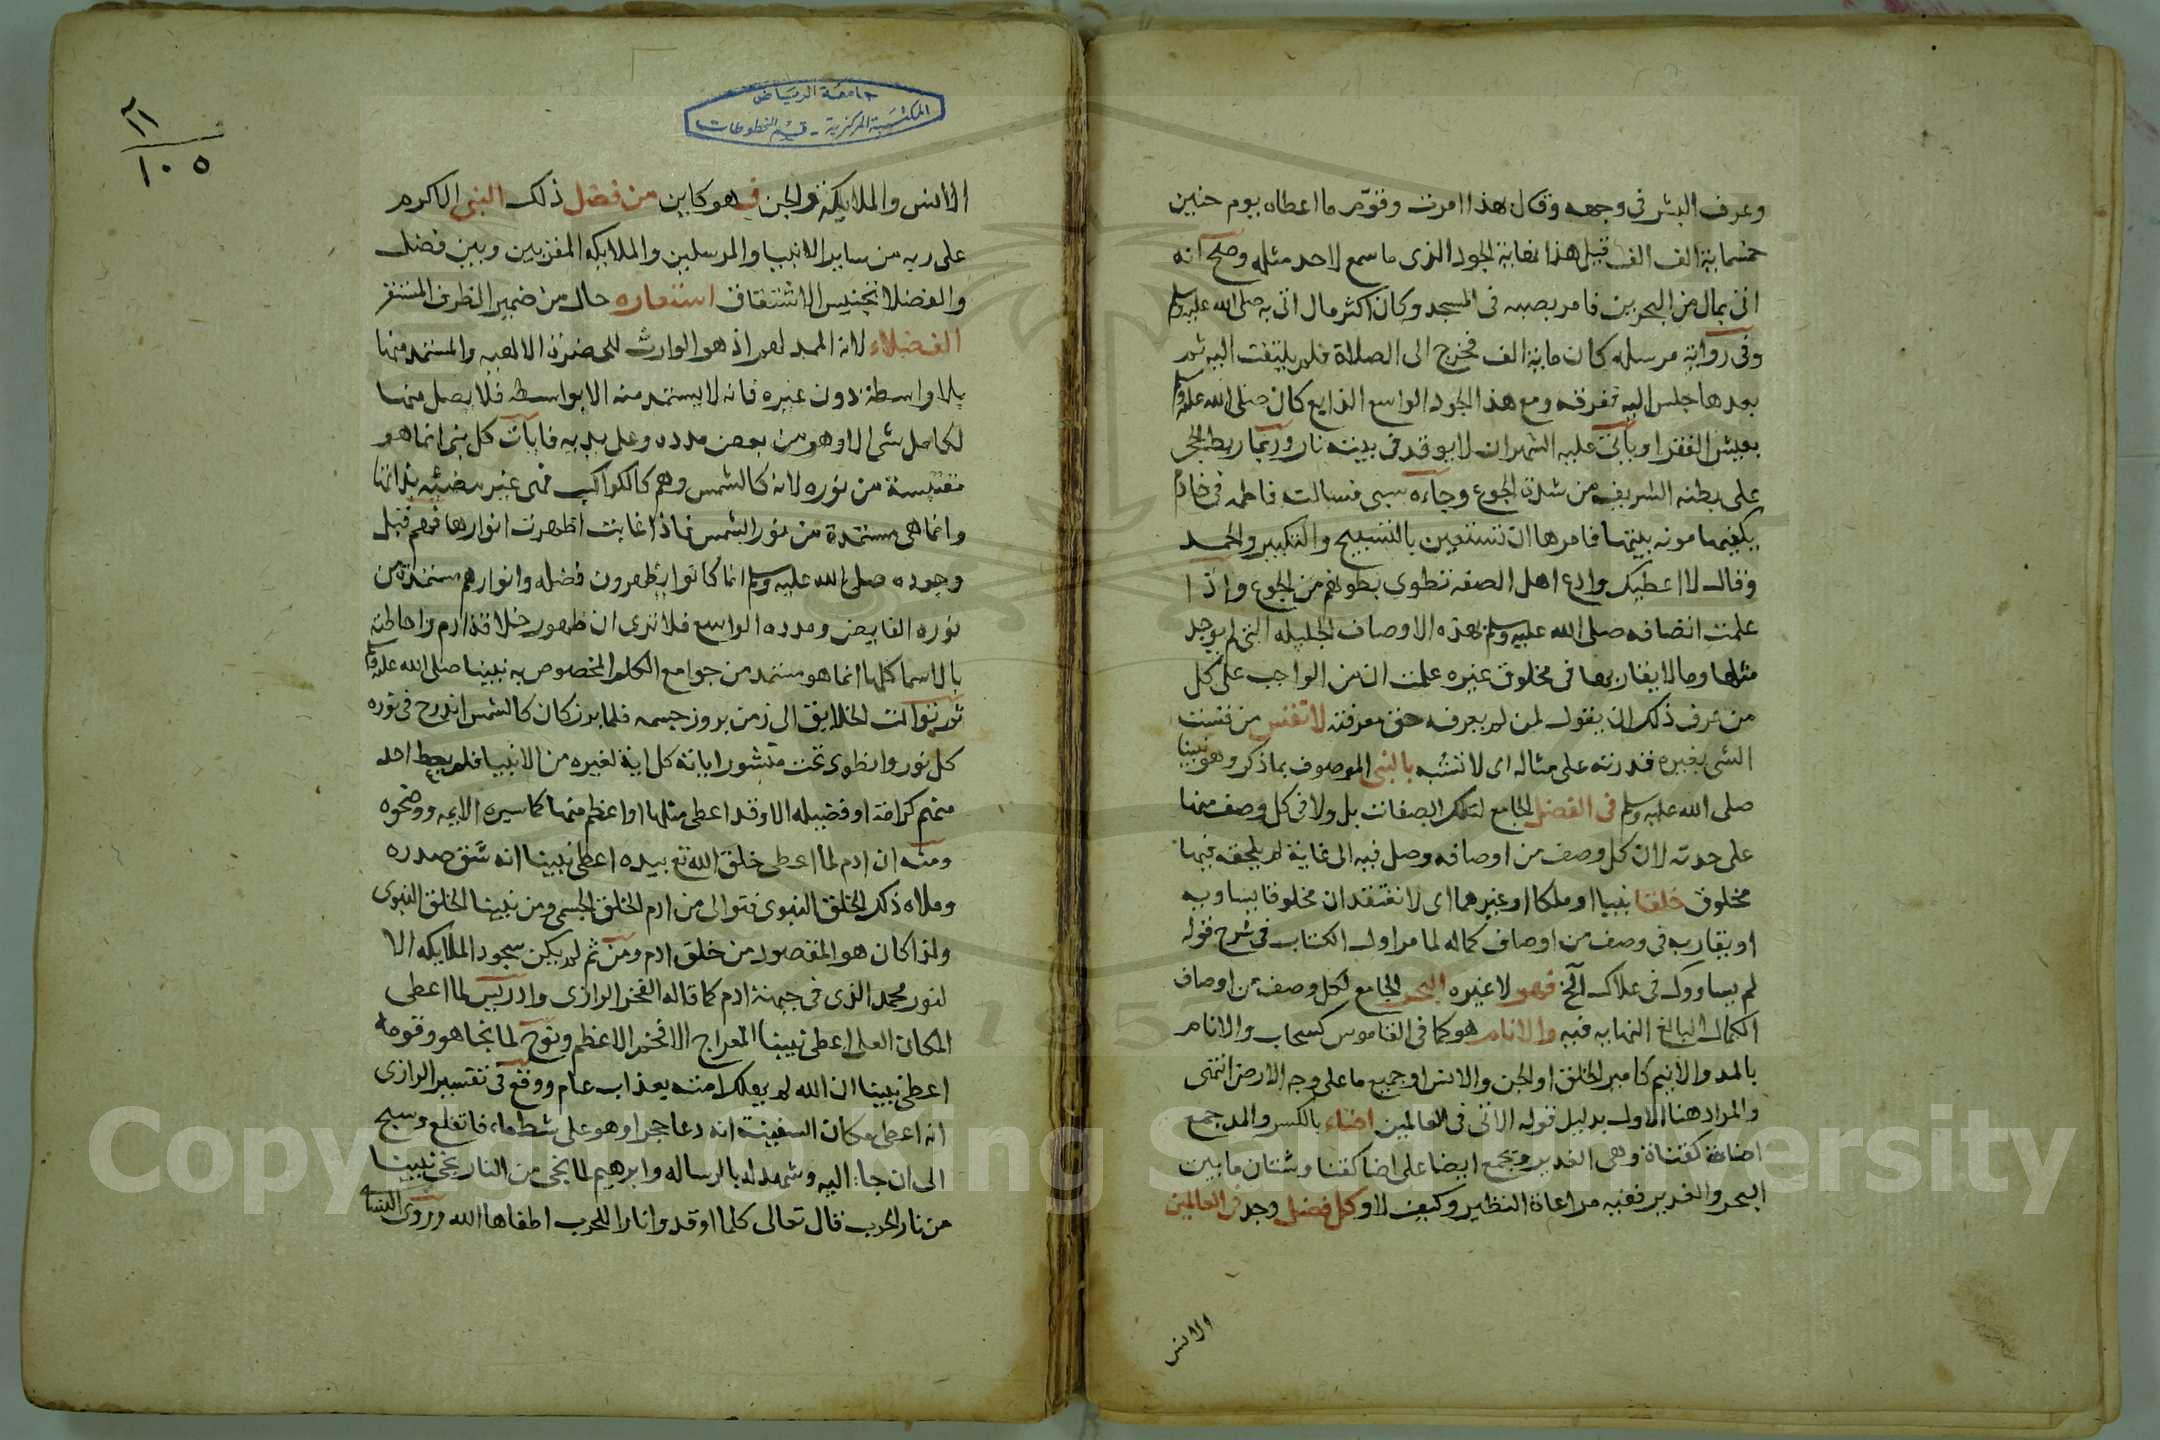 وعرف البشر فى وجهه وقال بهذا امرت وقوّم ما اعطاه يوم حنين
خمسماية الف الف قيل هذا نهاية الجود الذى ما سمع لاحد مثله وصح انه
اتى بمال من البحرين فامر بصبه فى المسجد وكان اكثر مال اتى به صلى الله عليه وسلم
وفى رواية مرسله كان ماية الف فخرج الى الصلاة فلم يلتفت اليه ثم
بعدها جلس اليه ففرقه ومع هذا الجود الواسع الذايع كان صلى الله عليه وسلم
يعيش الفقرا ويأتى عليه الشهران لا يوقد فى بيته نار وربما ربط الحجر
على بطنه الشريف من شدة الجوع وجاءه سبى فسالت فاطمه فى خادم
يكفيها مونه بيتها فامرها ان تستعين بالتسبيح والتكبير والحمد
وقال لا اعطيك وادع اهل الصفه تطوى بطونهم من الجوع واذا
علمت اتصافه صلى الله عليه وسلم بهذه الاوصاف الجليله التى لم يوجد
مثلها وما لا يقاربها فى مخلوق غيره علمت ان من الواجب على كل
من عرف ذلك ان يقول لمن لم يعرفه حق معرفته لا تقس من قست
الشى بغيره قدرته على مثاله اى لا تشبه بالنبى الموصوف بما ذكر وهو نبينا
صلى الله عليه وسلم فى الفضل الجامع لتلك الصفات بل ولا فى كل وصف منها
على حدته لان كل وصف من اوصافه وصل فيه الى غاية لم يلحقه فيها
مخلوق خلقا نبيا او ملكا او غيرهما اى لا تعتقد ان مخلوقا يساويه
او يقاربه فى وصف من اوصاف كماله لما مر اول الكتاب فى شرح قوله
لم يساووك فى علاك الخ فهو لا غيره البحر الجامع لكل وصف من اوصاف
الكمال البالغ النهايه فيه والانام هو كما فى القاموس كسحاب والانام
بالمد والانيم كامير الخلق او الجن والانس او جميع ما على وجه الارض انتهى
والمراد هنا الاول بدليل قوله الاتى فى العالمين اضاء بالكسر والمد جمع
اضاة كقناة وهى الغدير ويجمع ايضا على اضا كقنا وشتان ما بين
البحر والغدير ففيه مراعاة النظير وكيف لا وكل فضل وجد فى العالمين
الانس
٢١
١٠٥
جامعة الرياض
المكتبة المركزية - قسم المخطوطات
الانس والملايكة والجن فهو كاين من فضل ذلك النبى الاكرم
على ربه من ساير الانبيا والمرسلين والملايكه المقربين وبين فضل
والفضلا تجنيس الاشتقاق استعاره حال من ضمير الظرف المستقر
الفضلاء لانه الممد لهم اذ هو الوارث للحضرة الالهيه والمستمد منها
بلا واسطة دون غيره فانه لا يستمد منه الا بواسطه فلا يصل منها
لكامل شى الا وهو من بعض مدده وعلى يديه فايات كل نبى انما هو
مقتبسة من نوره لانه كالشمس وهم كالكواكب فهى غير مضيئه بذاتها
وانما هى مستمدة من نور الشمس فاذا غابت اظهرت انوارها فهم قبل
وجوده صلى الله عليه وسلم انما كانوا يظهرون فضله وانوارهم مستمدة من
نوره الفايض ومدده الواسع فلا ترى ان ظهور خلافة ادم واحاطته
بالاسما كلها انما هو مستمد من جوامع الكلم المخصوص به نبينا صلى الله عليه وسلم
ثم توالت الخلايق الى زمن بروز جسمه فلما برز كان كالشمس اندرج فى نوره
كل نور وانطوى تحت منشور اياته كل اية لغيره من الانبيا فلم يعط احد
منهم كرامة او فضيله الا وقد اعطى مثلها او اعظم منها كما سيره الايمه ووضحوه
ومنه ان ادم لما اعطى خلق الله تع بيده اعطى نبينا انه شق صدره
وملاه ذلك الخلق النبوى فتوالى من ادم الخلق الجسمى ومن نبينا الخلق النبوى
ولذا كان هو المقصود من خلق ادم ومن ثم لم يكن سجود الملايكه الا
لنور محمد الذى فى جبهة ادم كما قاله الفخر الرازى وادريس لما اعطى
المكان العلى اعطى نبينا المعراج الافخر الاعظم ونوح لما نجا هو وقومه
اعطى نبينا ان الله لم يهلك امته بعذاب عام ووقع فى تفسير الرازى
انه اعطى مكان السفينة انه دعا حجرا وهو على شط ماء فانقلع وسبح
الى ان جاء اليه وشهد له بالرساله وابرهيم لما نجى من النار نجى نبينا
من نار الحرب قال تعالى كلما اوقدوا نارا للحرب اطفاها الله وروى النسائى
Copyright © King Saud University